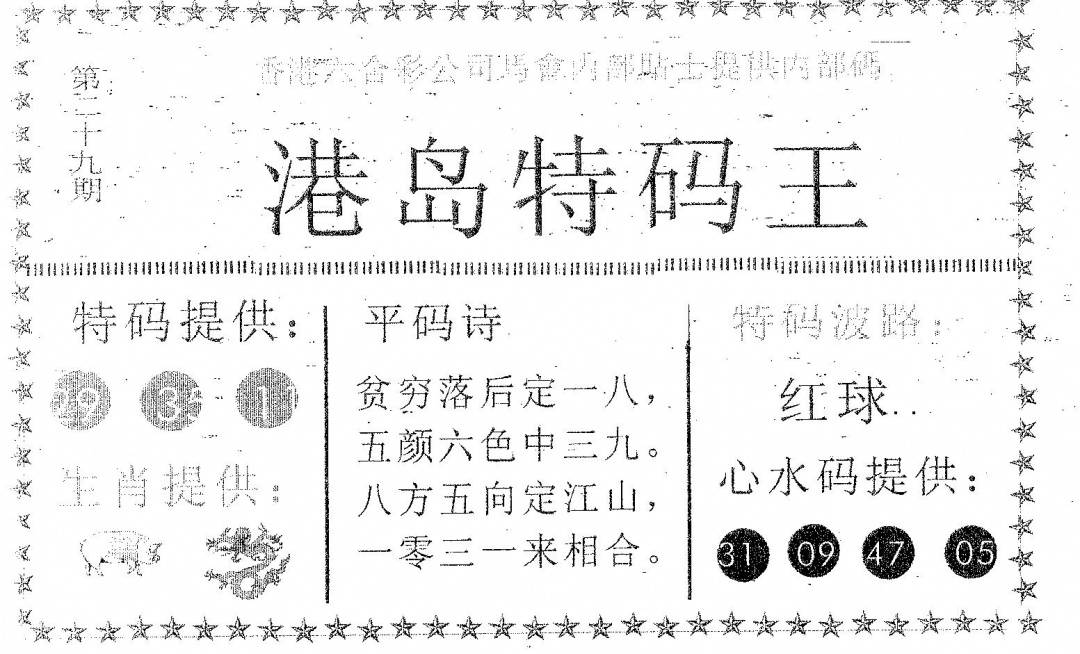 香港六合彩公司馬會内部貼士提供内部碼
第二十九期
港岛特码王
特码提供:
29
生肖提供:
平码诗
贫穷落后定一八,
五颜六色中三九。
八方五向定江山,
一零三一来相合。
特码波路:
红球..
心水码提供:
31 09 47 05